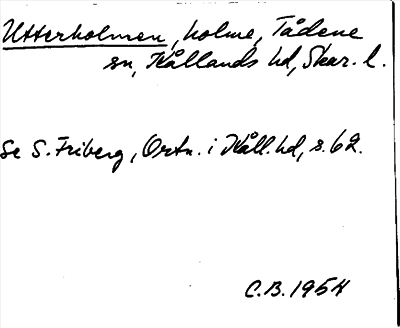 Utterholmen, holme, Tådene
sn, Kållands hd, Skar. l.
Se S. Friberg, Ortn. i Kåll. hd, s. 62.
C.B. 1954